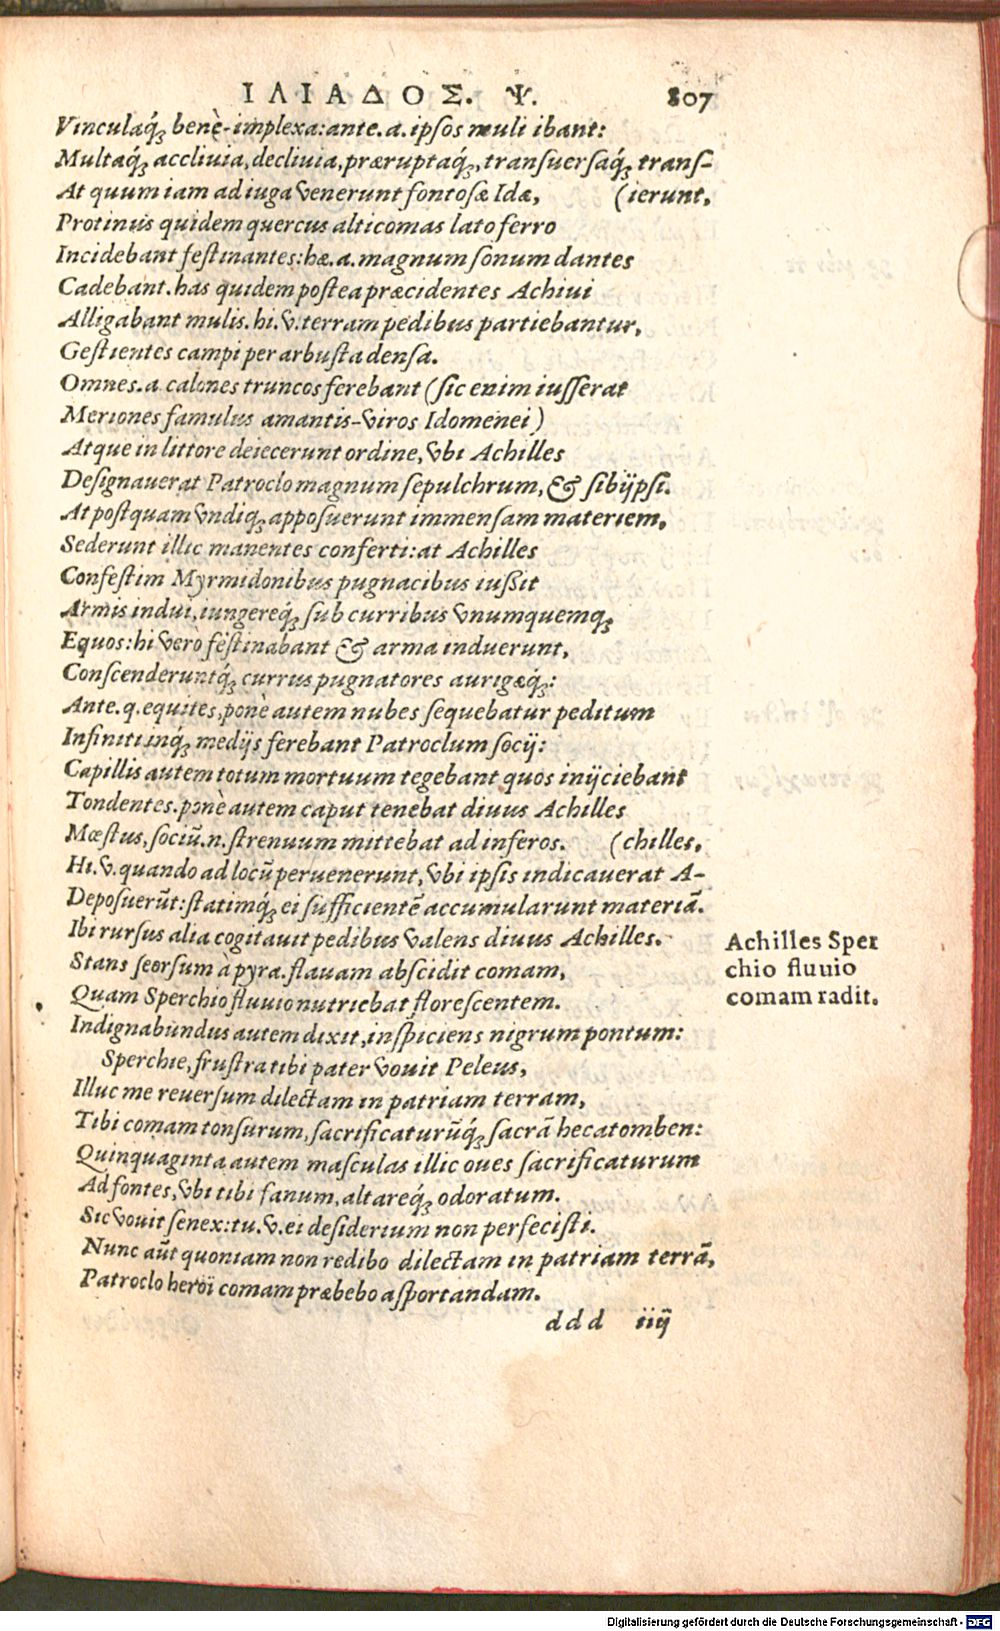 ΙΛΙΑΔΟΣ. Ψ. 807
Vinculaq́; benè-implexa: ante .a. ipsos muli ibant:
Multaq́; accliuia, decliuia, præruptaq́;, transuersaq́; trans-
At quum iam ad iuga venerunt fontosæ Idæ, (ierunt,
Protinus quidem quercus alticomas lato ferro
Incidebant festinantes: hæ .a. magnum sonum dantes
Cadebant. has quidem postea præcidentes Achiui
Alligabant mulis. hi .v. terram pedibus partiebantur,
Gestientes campi per arbusta densa.
Omnes .a. calones truncos ferebant (sic enim iusserat
Meriones famulus amantis-viros Idomenei)
Atque in littore deiecerunt ordine, vbi Achilles
Designauerat Patroclo magnum sepulchrum, & sibijpsi.
At postquam vndiq; apposuerunt immensam materiem,
Sederunt illic manentes conferti: at Achilles
Confestim Myrmidonibus pugnacibus iußit
Armis indui, iungereq́; sub curribus vnumquemq;
Equos: hi verò festinabant & arma induerunt,
Conscenderuntq́; currus pugnatores aurigæq́;:
Ante .q. equites, ponè autem nubes sequebatur peditum
Infiniti inq́; medijs ferebant Patroclum socij:
Capillis autem totum mortuum tegebant quos inijciebant
Tondentes. ponè autem caput tenebat diuus Achilles
Mœstus, sociũ .n. strenuum mittebat ad inferos. (chilles,
Hi .v. quando ad locũ peruenerunt, vbi ipsis indicauerat A-
Deposuerũt: statimq́; ei sufficientẽ accumularunt materiã.
Ibi rursus alia cogitauit pedibus valens diuus Achilles.
Stans seorsum à pyra. flauam abscidit comam,
Quam Sperchio fluuio nutriebat florescentem.
Indignabundus autem dixit, inspiciens nigrum pontum:
Sperchie, frustra tibi pater vouit Peleus,
Illuc me reuersum dilectam in patriam terram,
Tibi comam tonsurum, sacrificaturũq́; sacrã hecatomben:
Quinquaginta autem masculas illic oues sacrificaturum
Ad fontes, vbi tibi fanum, altareq́; odoratum.
Sic vouit senex: tu .v. ei desiderium non perfecisti.
Nunc aũt quoniam non redibo dilectam in patriam terrã,
Patroclo heroï comam præbebo asportandam.
ddd iiij
Achilles Sper
chio fluuio
comam radit.
Digitalisierung gefördert durch die Deutsche Forschungsgemeinschaft - DFG